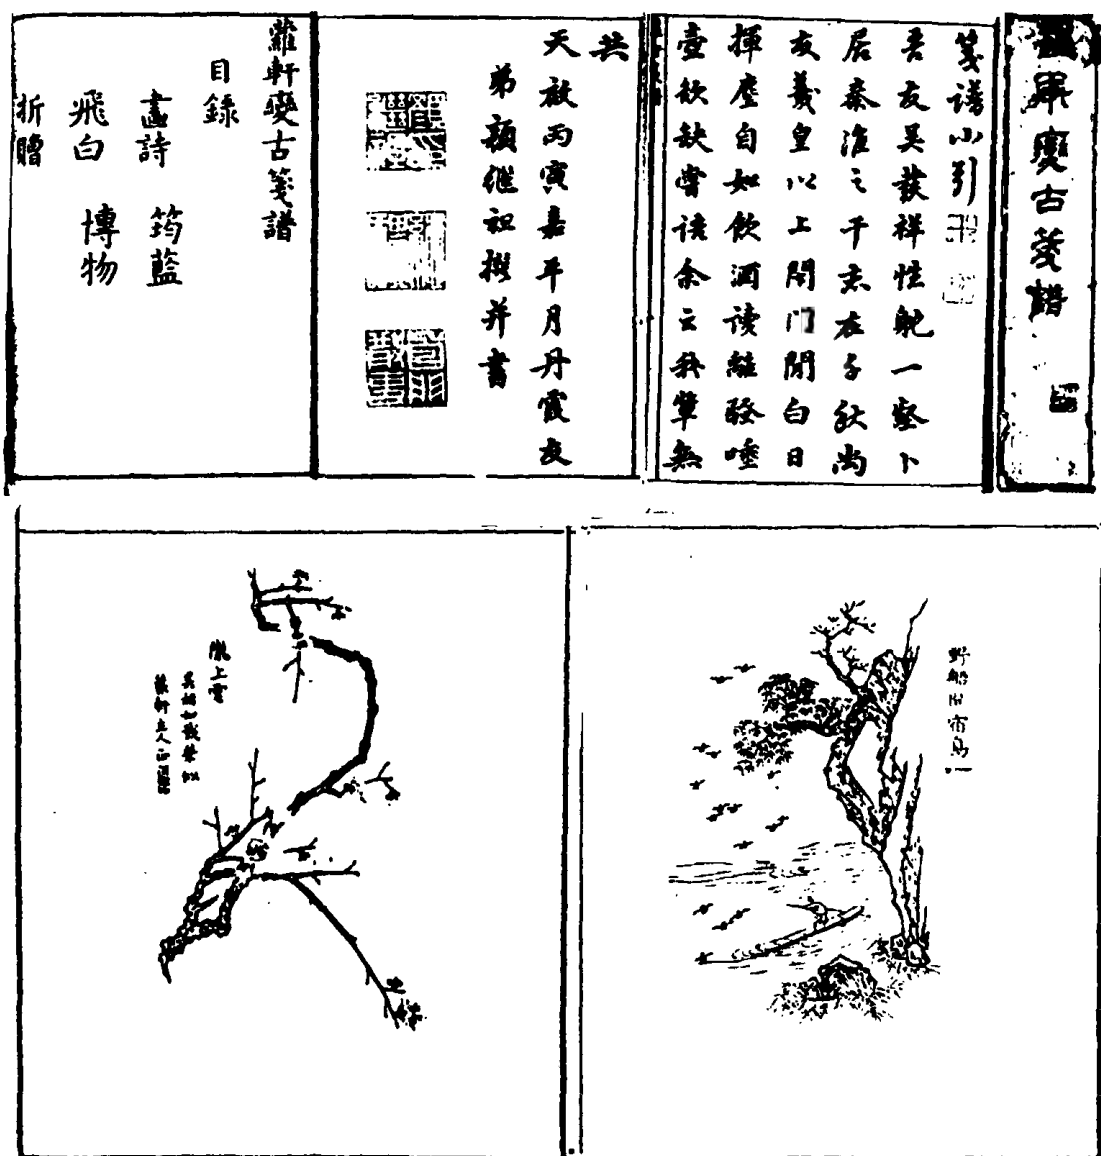 軒變古箋譜
箋譜小引
吾友吳發祥性耽一壑卜
居秦淮之干志在千秋尚
友羲皇以上閉門閒白日
揮麈自如飲酒讀離騷唾
壺欲缺嘗語余云我輩無
共
天啟丙寅嘉平月丹霞友
弟顏繼祖撰并書
蘿軒變古箋譜
目錄
畫詩 筠籃
飛白 博物
折贈
野船宿鳥
上